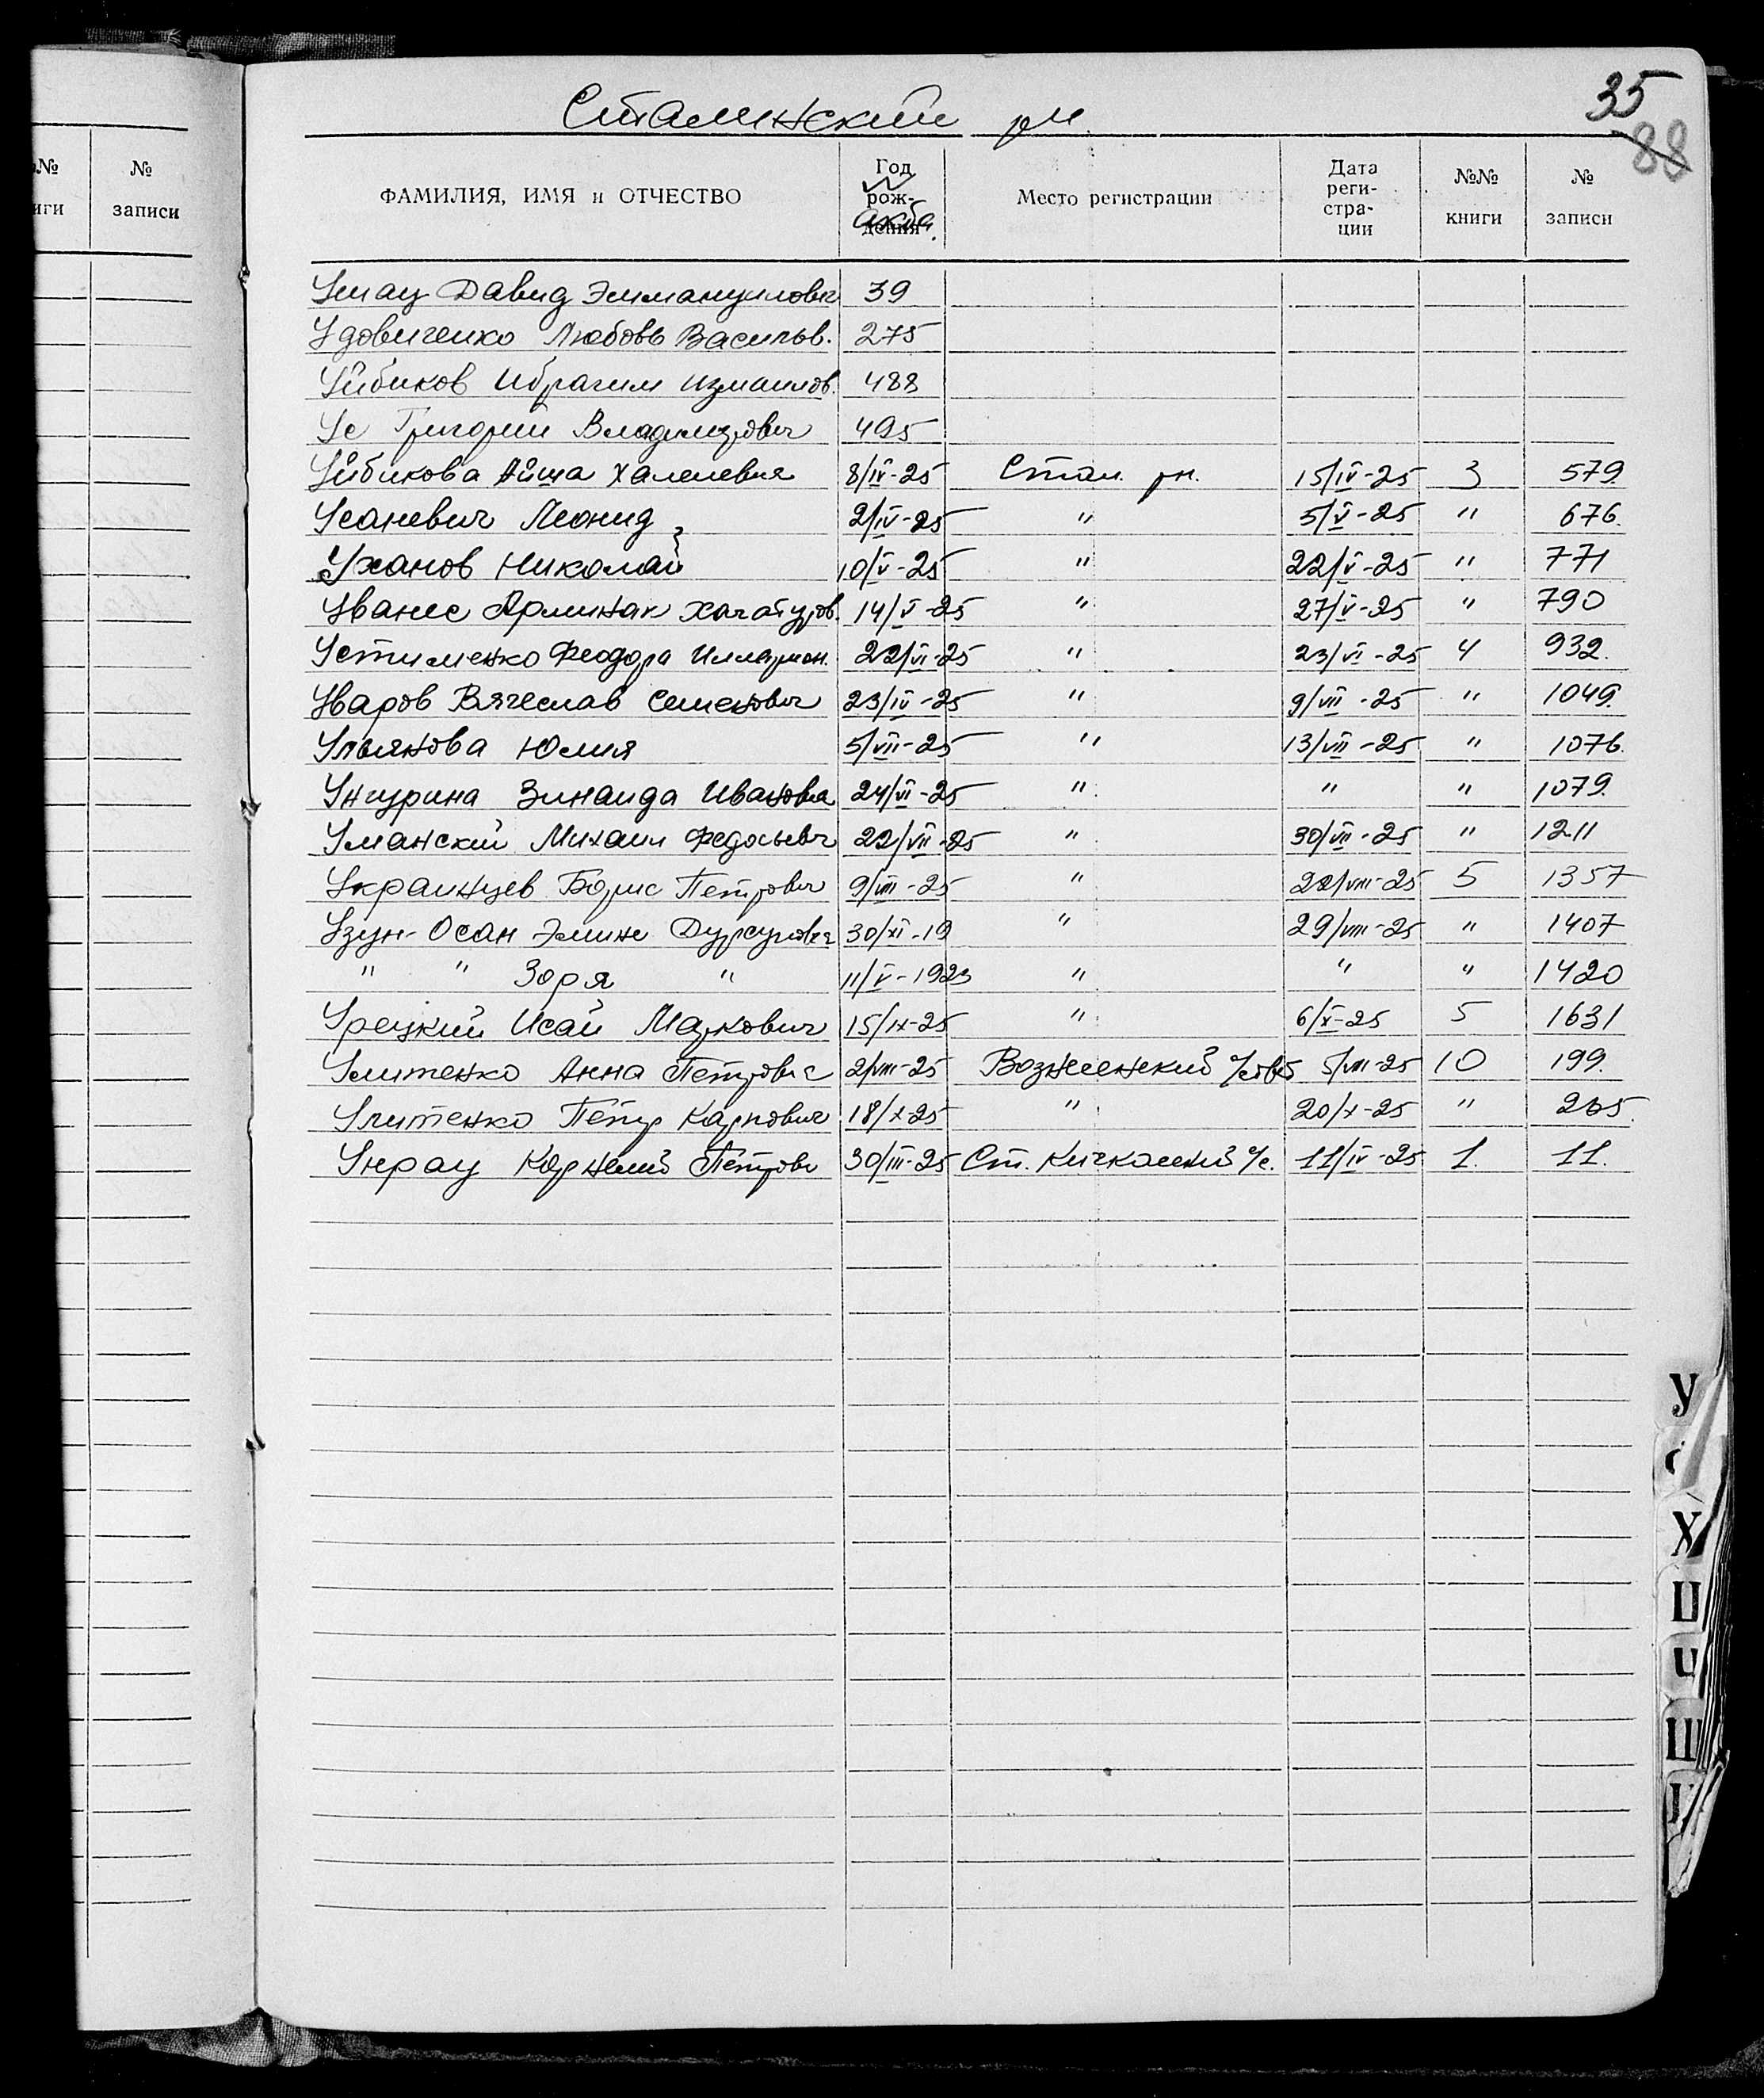 Сталинский рн.
35
88
№№ книги № записи
ФАМИЛИЯ, ИМЯ и ОТЧЕСТВО Год рождения № акта. Место регистрации Дата регистрации №№ книги № записи
Давид Эммануилович 39
Удовиченко Любовь Васильв. 275
Уйбиков Ибрагим Измаилов. 488
Ус Григорий Владимирович 495
Уйбикова Айша Халелевна 8/IV-25 Стал. рн. 15/IV-25 3 579.
Усаневич Леонид 2/IV-25 " 5/V-25 " 676.
Уханов Николай 10/V-25 " 22/V-25 " 771
Уванес Арминак Хачатуров. 14/V-25 " 27/V-25 " 790
Устименко Феодора Илларион. 22/VI-25 " 23/VI-25 4 932.
Уваров Вячеслав Семенович 23/IV-25 " 9/VII-25 " 1049.
Ульянова Юлия 5/VII-25 " 13/VII-25 " 1076.
Унгурина Зинаида Ивановна 24/VI-25 " " " 1079.
Уманский Михаил 22/VII-25 " 30/VII-25 " 1211
Украинцев Борис Петрович 9/VIII-25 " 22/VIII-25 5 1357
Узун-Осан Эмине Дурсуновна 30/XI-19 " 29/VIII-25 " 1407
" " Зоря " 11/V-1923 " " " 1420
Урецкий Исай Маркович 15/IX-25 " 6/X-25 5 1631
Анна Петровна 2/VIII-25 5/VIII-25 10 199.
Улитенко Пётр Карпович 18/X-25 " 20/X-25 " 265.
Унрау Корнелий Петрович 30/III-25 Ст. Кичкасский с/с. 11/IV-25 1. 11.
У
Х
Ц
Ч
Ш